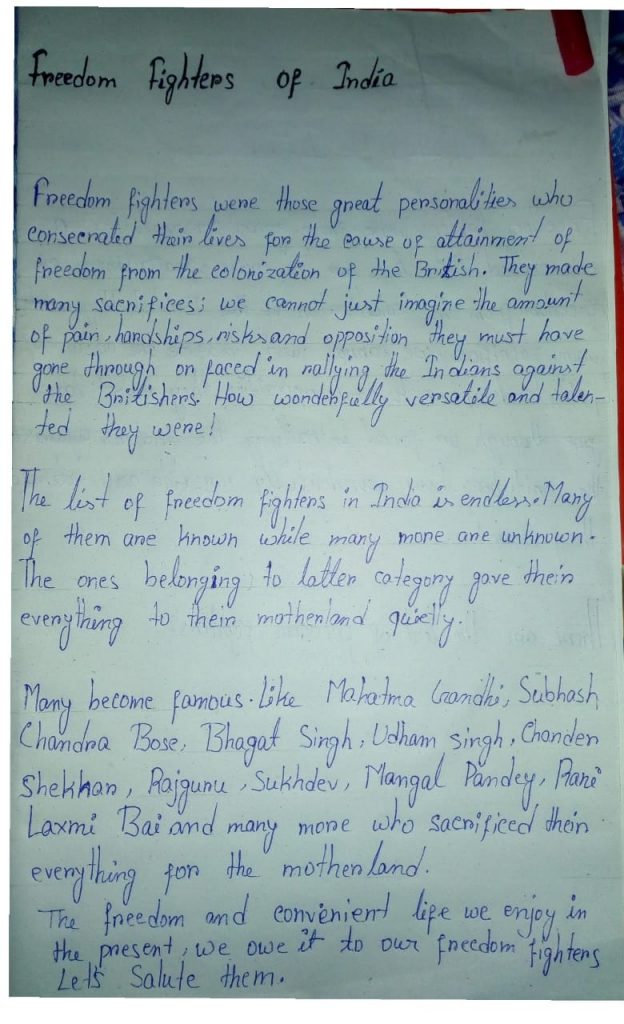 Freedom Fighters of India
Freedom fighters were those great personalities who
consecrated their lives for the cause of attainment of
freedom from the colonization of the British. They made
many sacrifices; we cannot just imagine the amount
of pain, hardships, risks and opposition they must have
gone through or faced in rallying the Indians against
the Britishers. How wonderfully versatile and talen-
ted they were!
The list of freedom fighters in India is endless. Many
of them are known while many more are unknown.
The ones belonging to latter category gave their
everything to their motherland quietly.
Many become famous. Like Mahatma Gandhi, Subhash
Chandra Bose, Bhagat Singh, Udham singh, Chander
Shekhar, Rajguru, Sukhdev, Mangal Pandey, Rani
Laxmi Bai and many more who sacrificed their
everything for the motherland.
The freedom and convenient life we enjoy in
the present, we owe it to our freedom fighters
Let's Salute them.